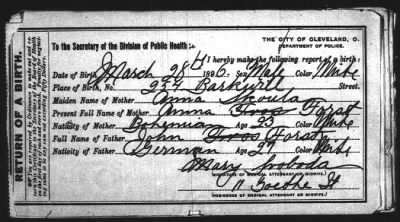 THE CITY OF CLEVELAND, O.
DEPARTMENT OF POLICE.
To the Secretary of the Division of Public Health:
I hereby make the following report of a birth:
Date of Birth, March 28th 1896. Sex Male Color White
Place of Birth, No. 237 Street.
Maiden Name of Mother Anna
Present Full Name of Mother Anna Forst
Nativity of Mother Bohemian Age 23 Color White
Full Name of Father John Forst
Nativity of Father German Age 27 Color White
Mary Svoboda
(SIGNATURE OF MEDICAL ATTENDANT OR MIDWIFE.)
11 Goethe St
(RESIDENCE OF MEDICAL ATTENDANT OR MIDWIFE.)
RETURN OF A BIRTH.